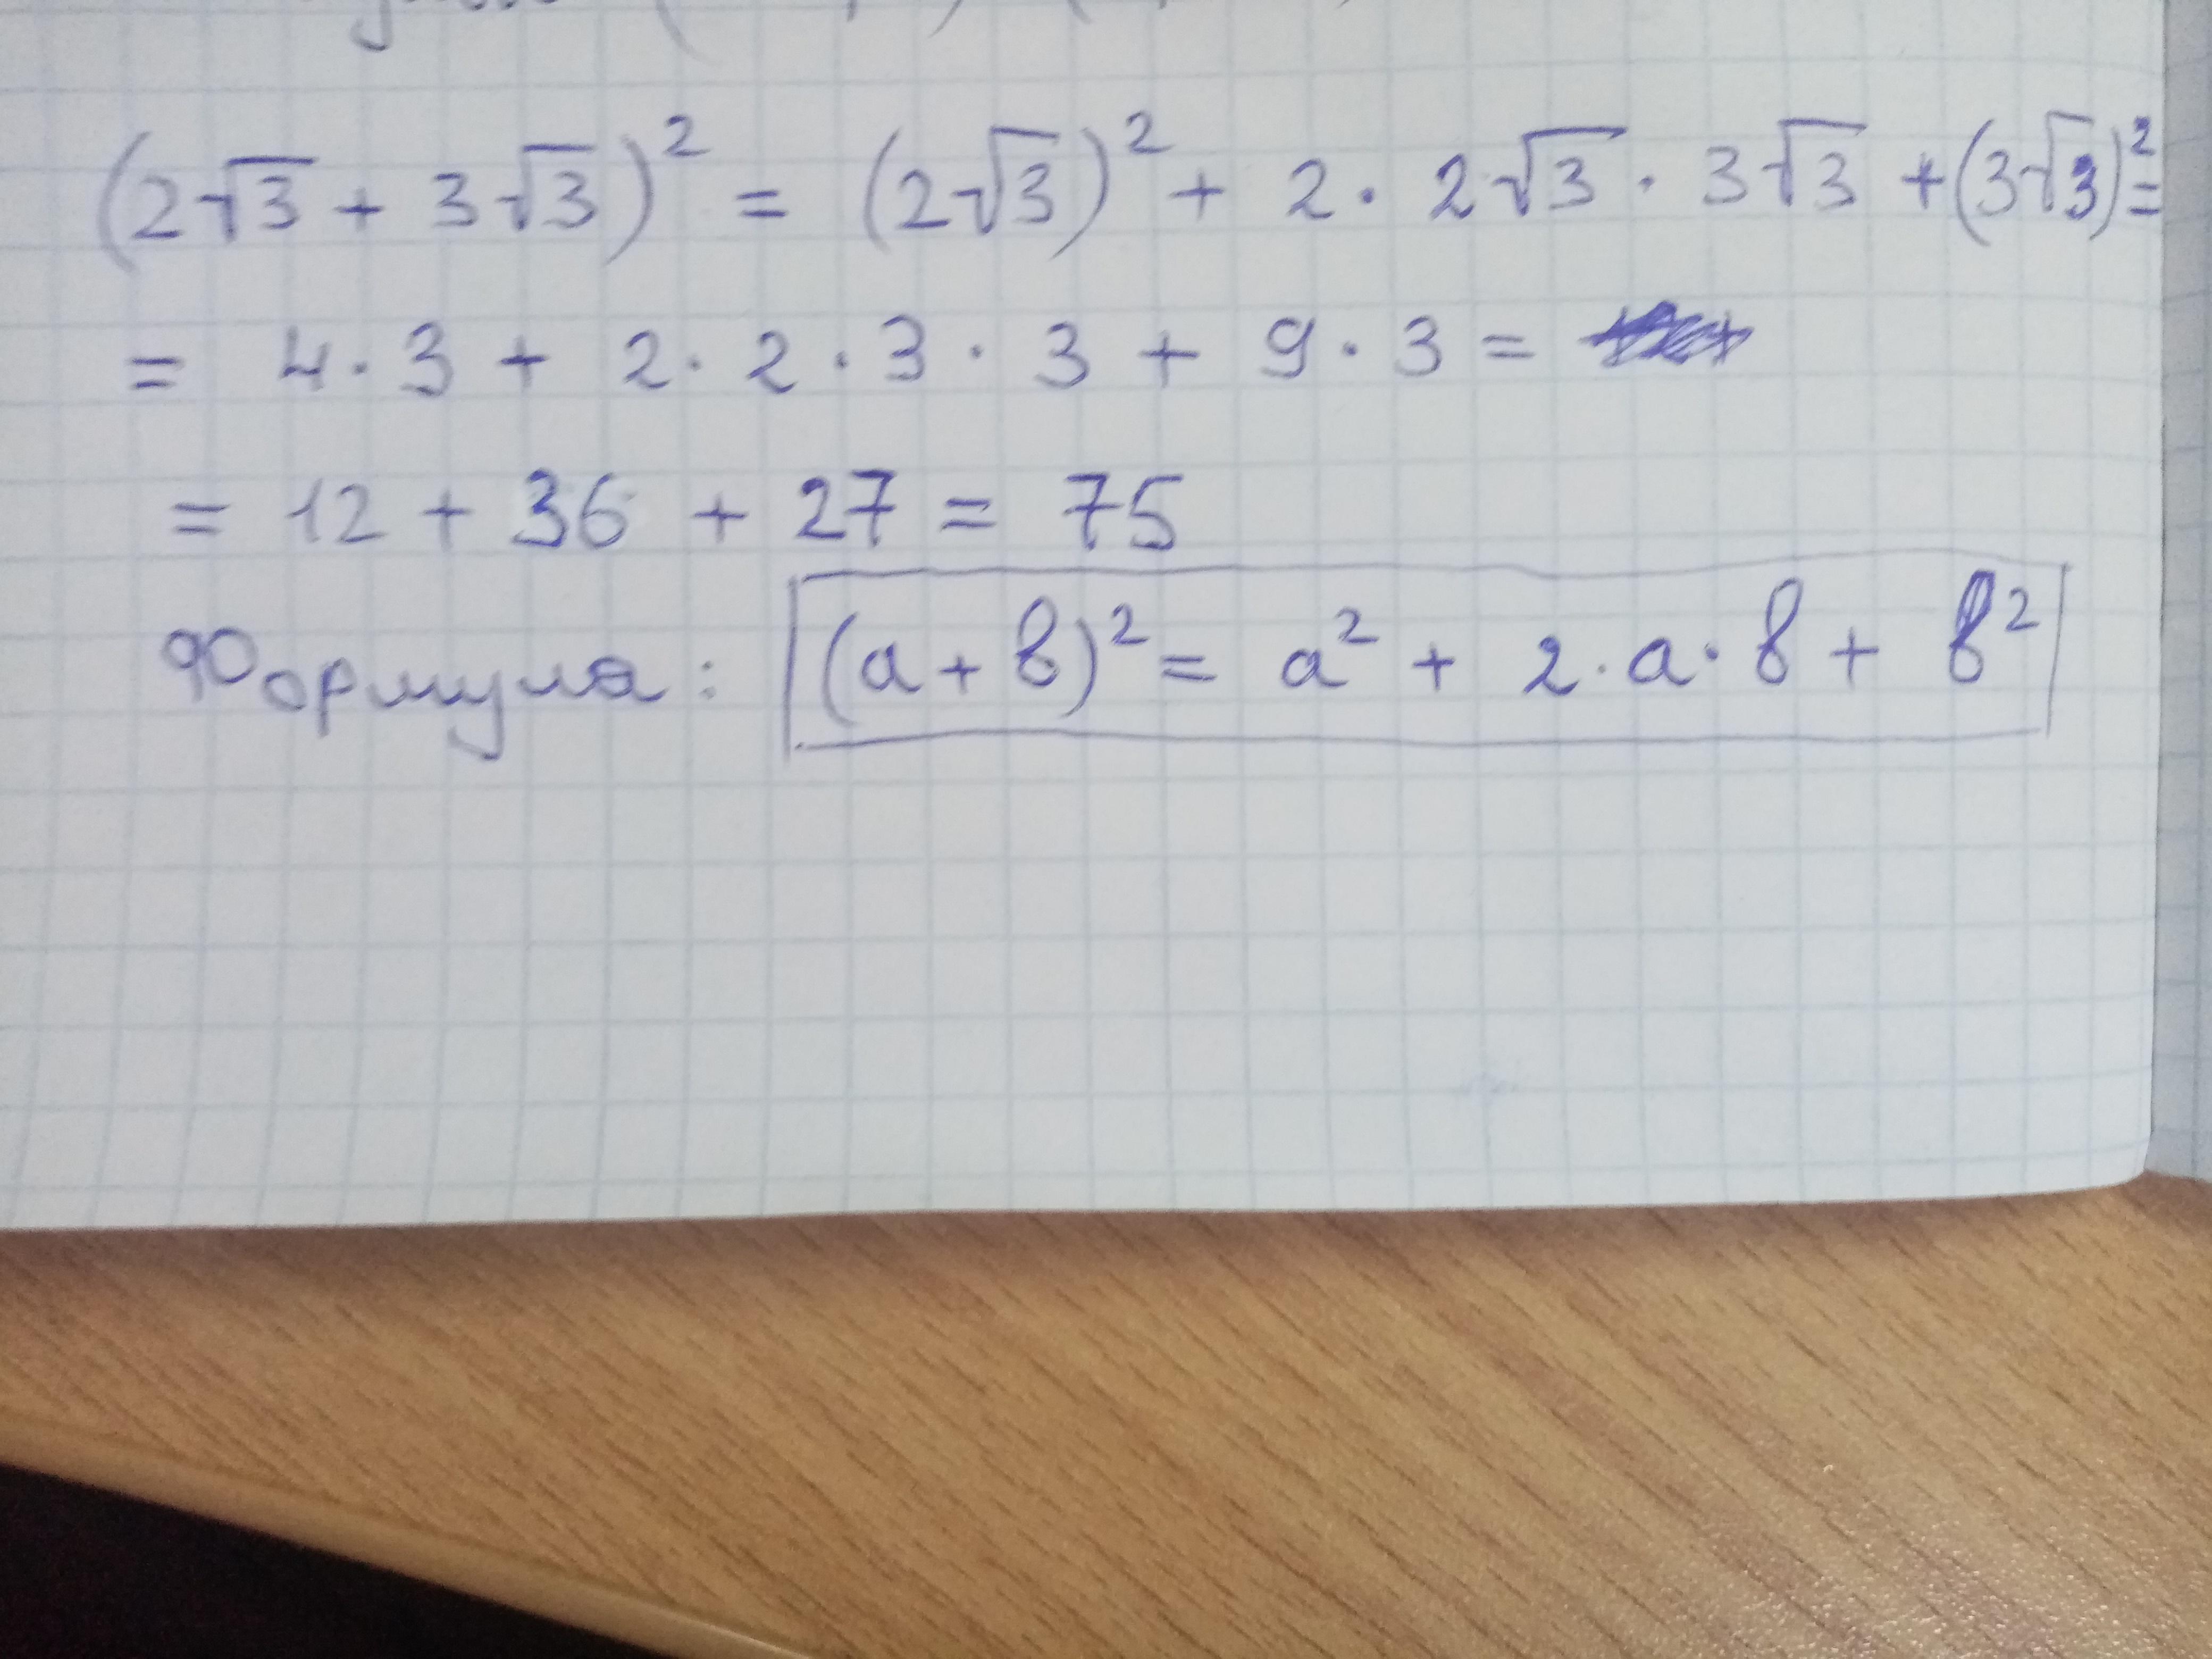 (2√3 + 3√3)² = (2√3)² + 2 · 2√3 · 3√3 + (3√3)² =
= 4 · 3 + 2 · 2 · 3 · 3 + 9 · 3 =
= 12 + 36 + 27 = 75
Формула: (a + b)² = a² + 2 · a · b + b²